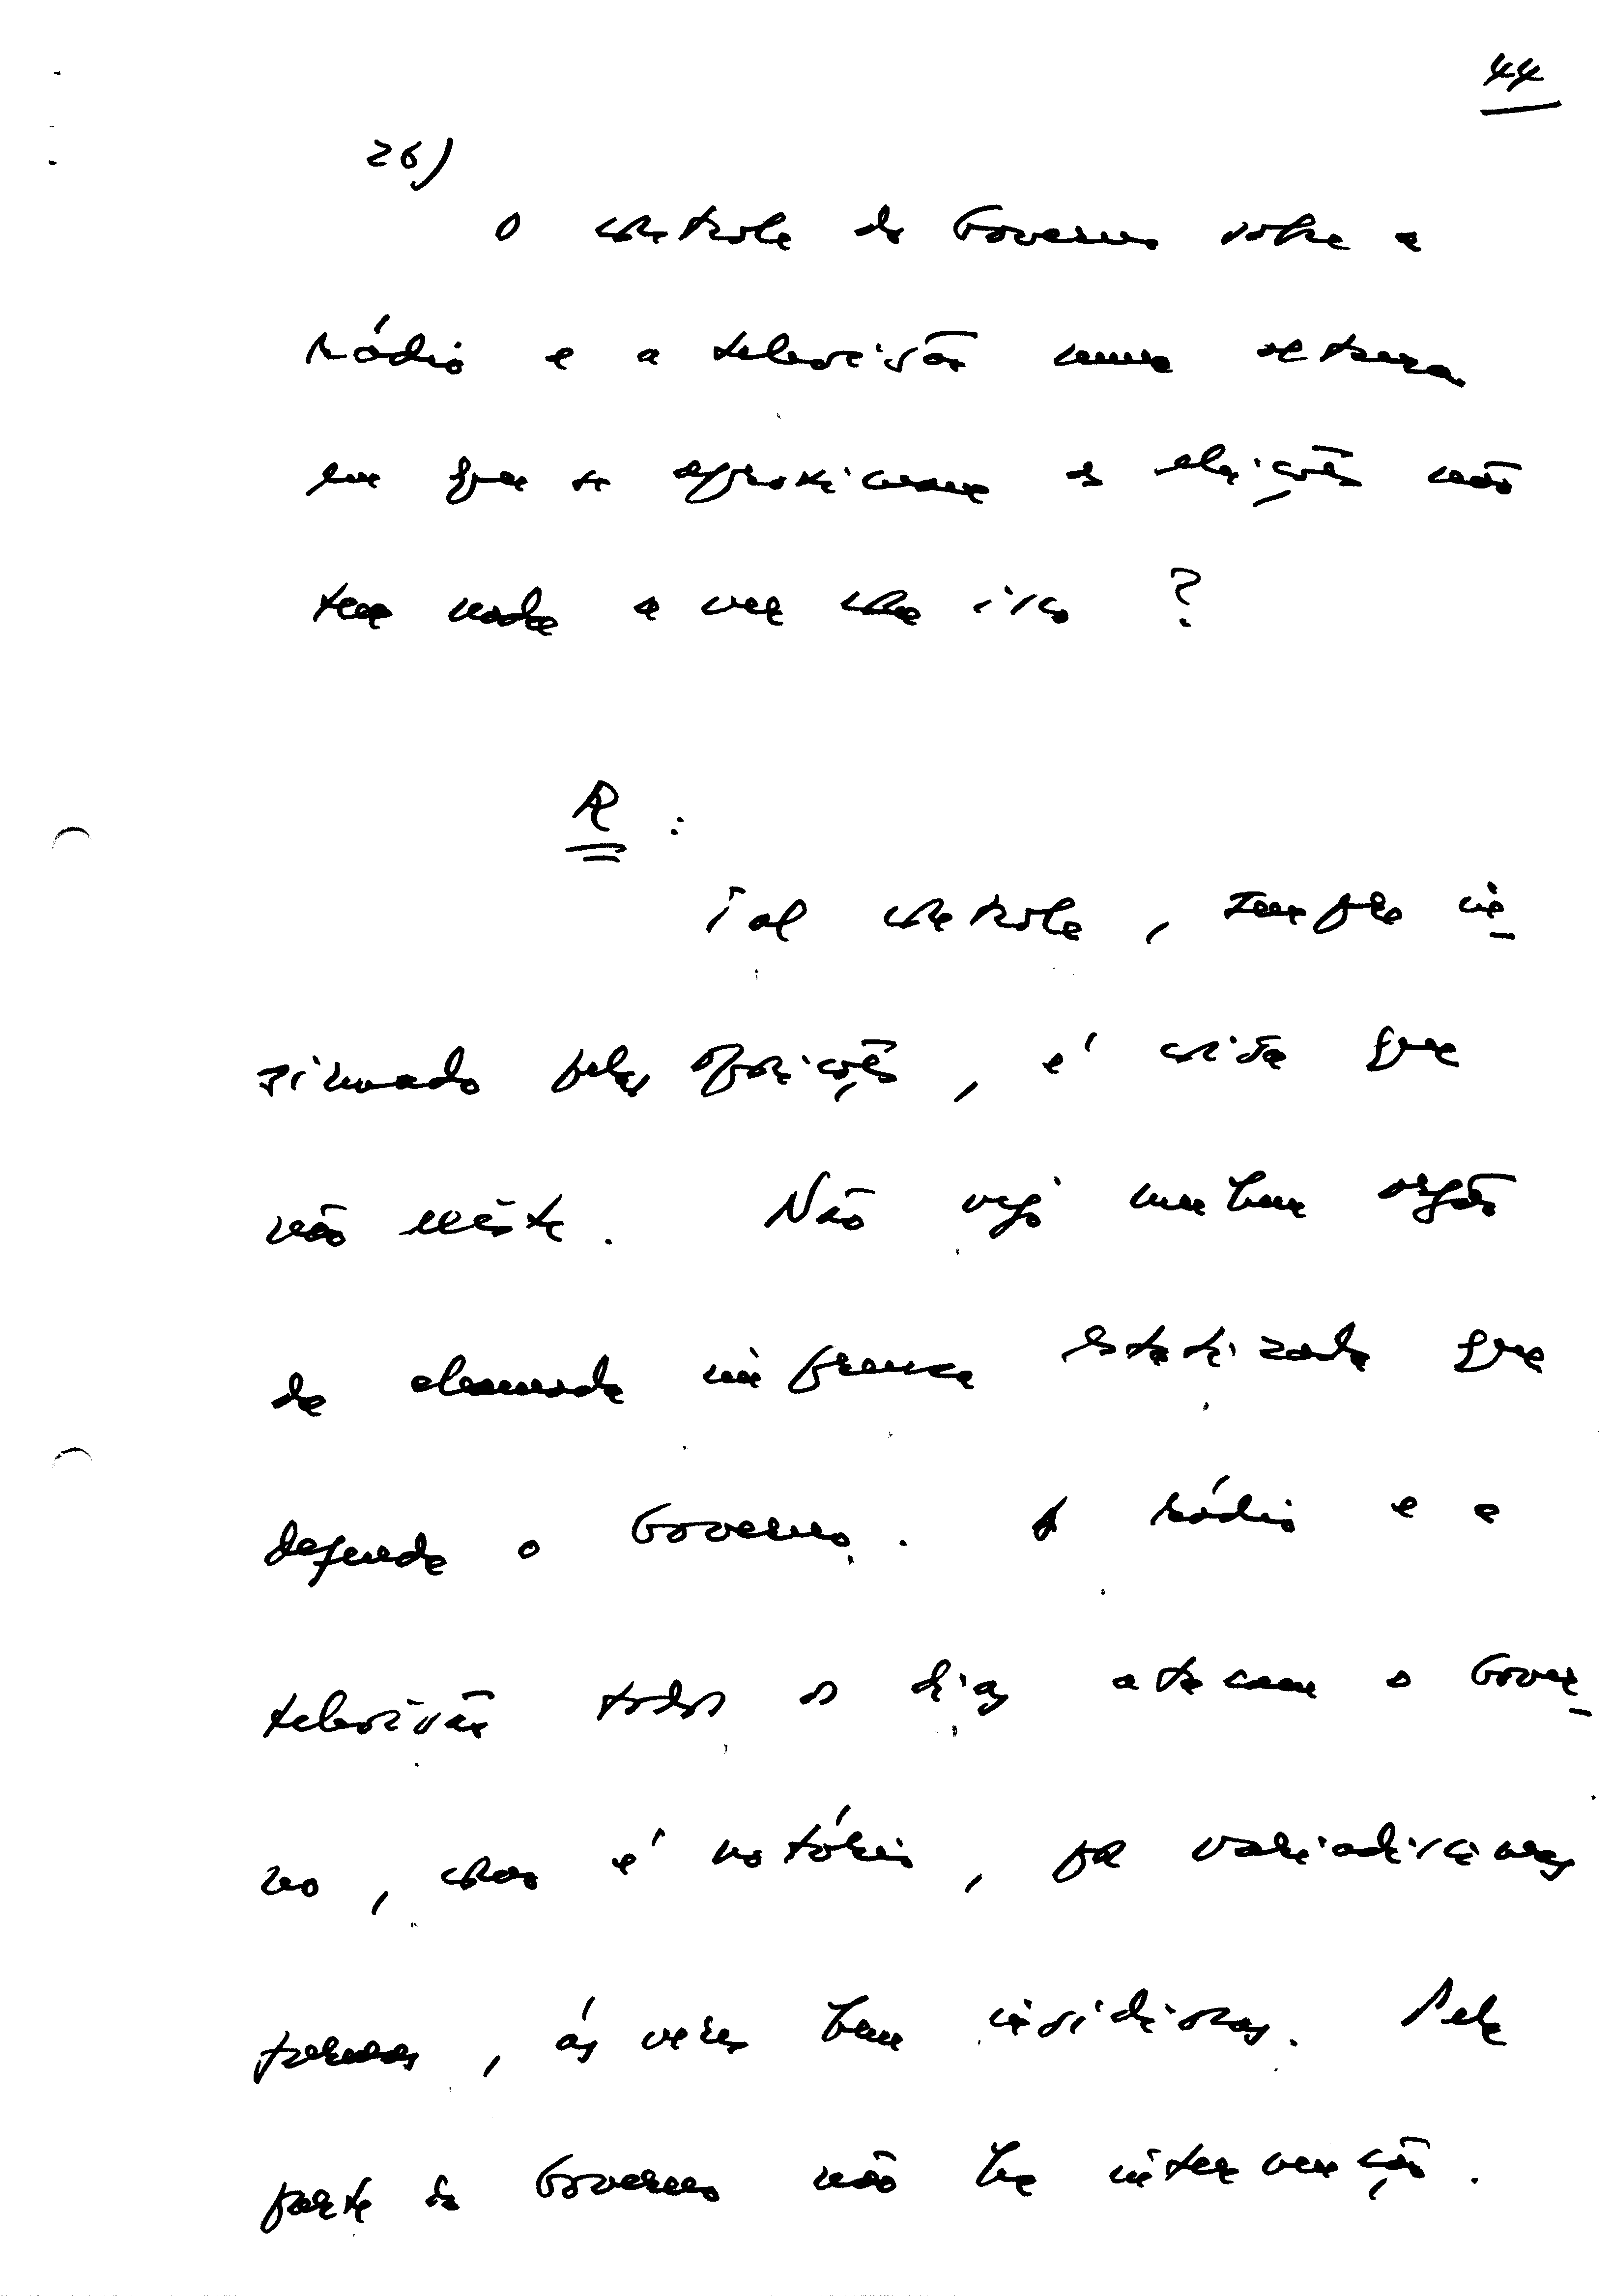 44
26)
O controle do Governo sobre a
rádio e a televisão numa altura
em que se aproximam as eleições não
tem nada a ver com isso ?
R :
Tal controle, sempre in-
sinuado pelas oposições, é coisa que
não existe. Não vejo nenhum orgão
da chamada imprensa estatizada que
defenda o Governo. A rádio e a
televisão todos os dias atacam o Gover-
no, como é notório, por variadíssimas
formas, ás vezes bem insidiosas. Pela
parte do Governo não há intervenção.